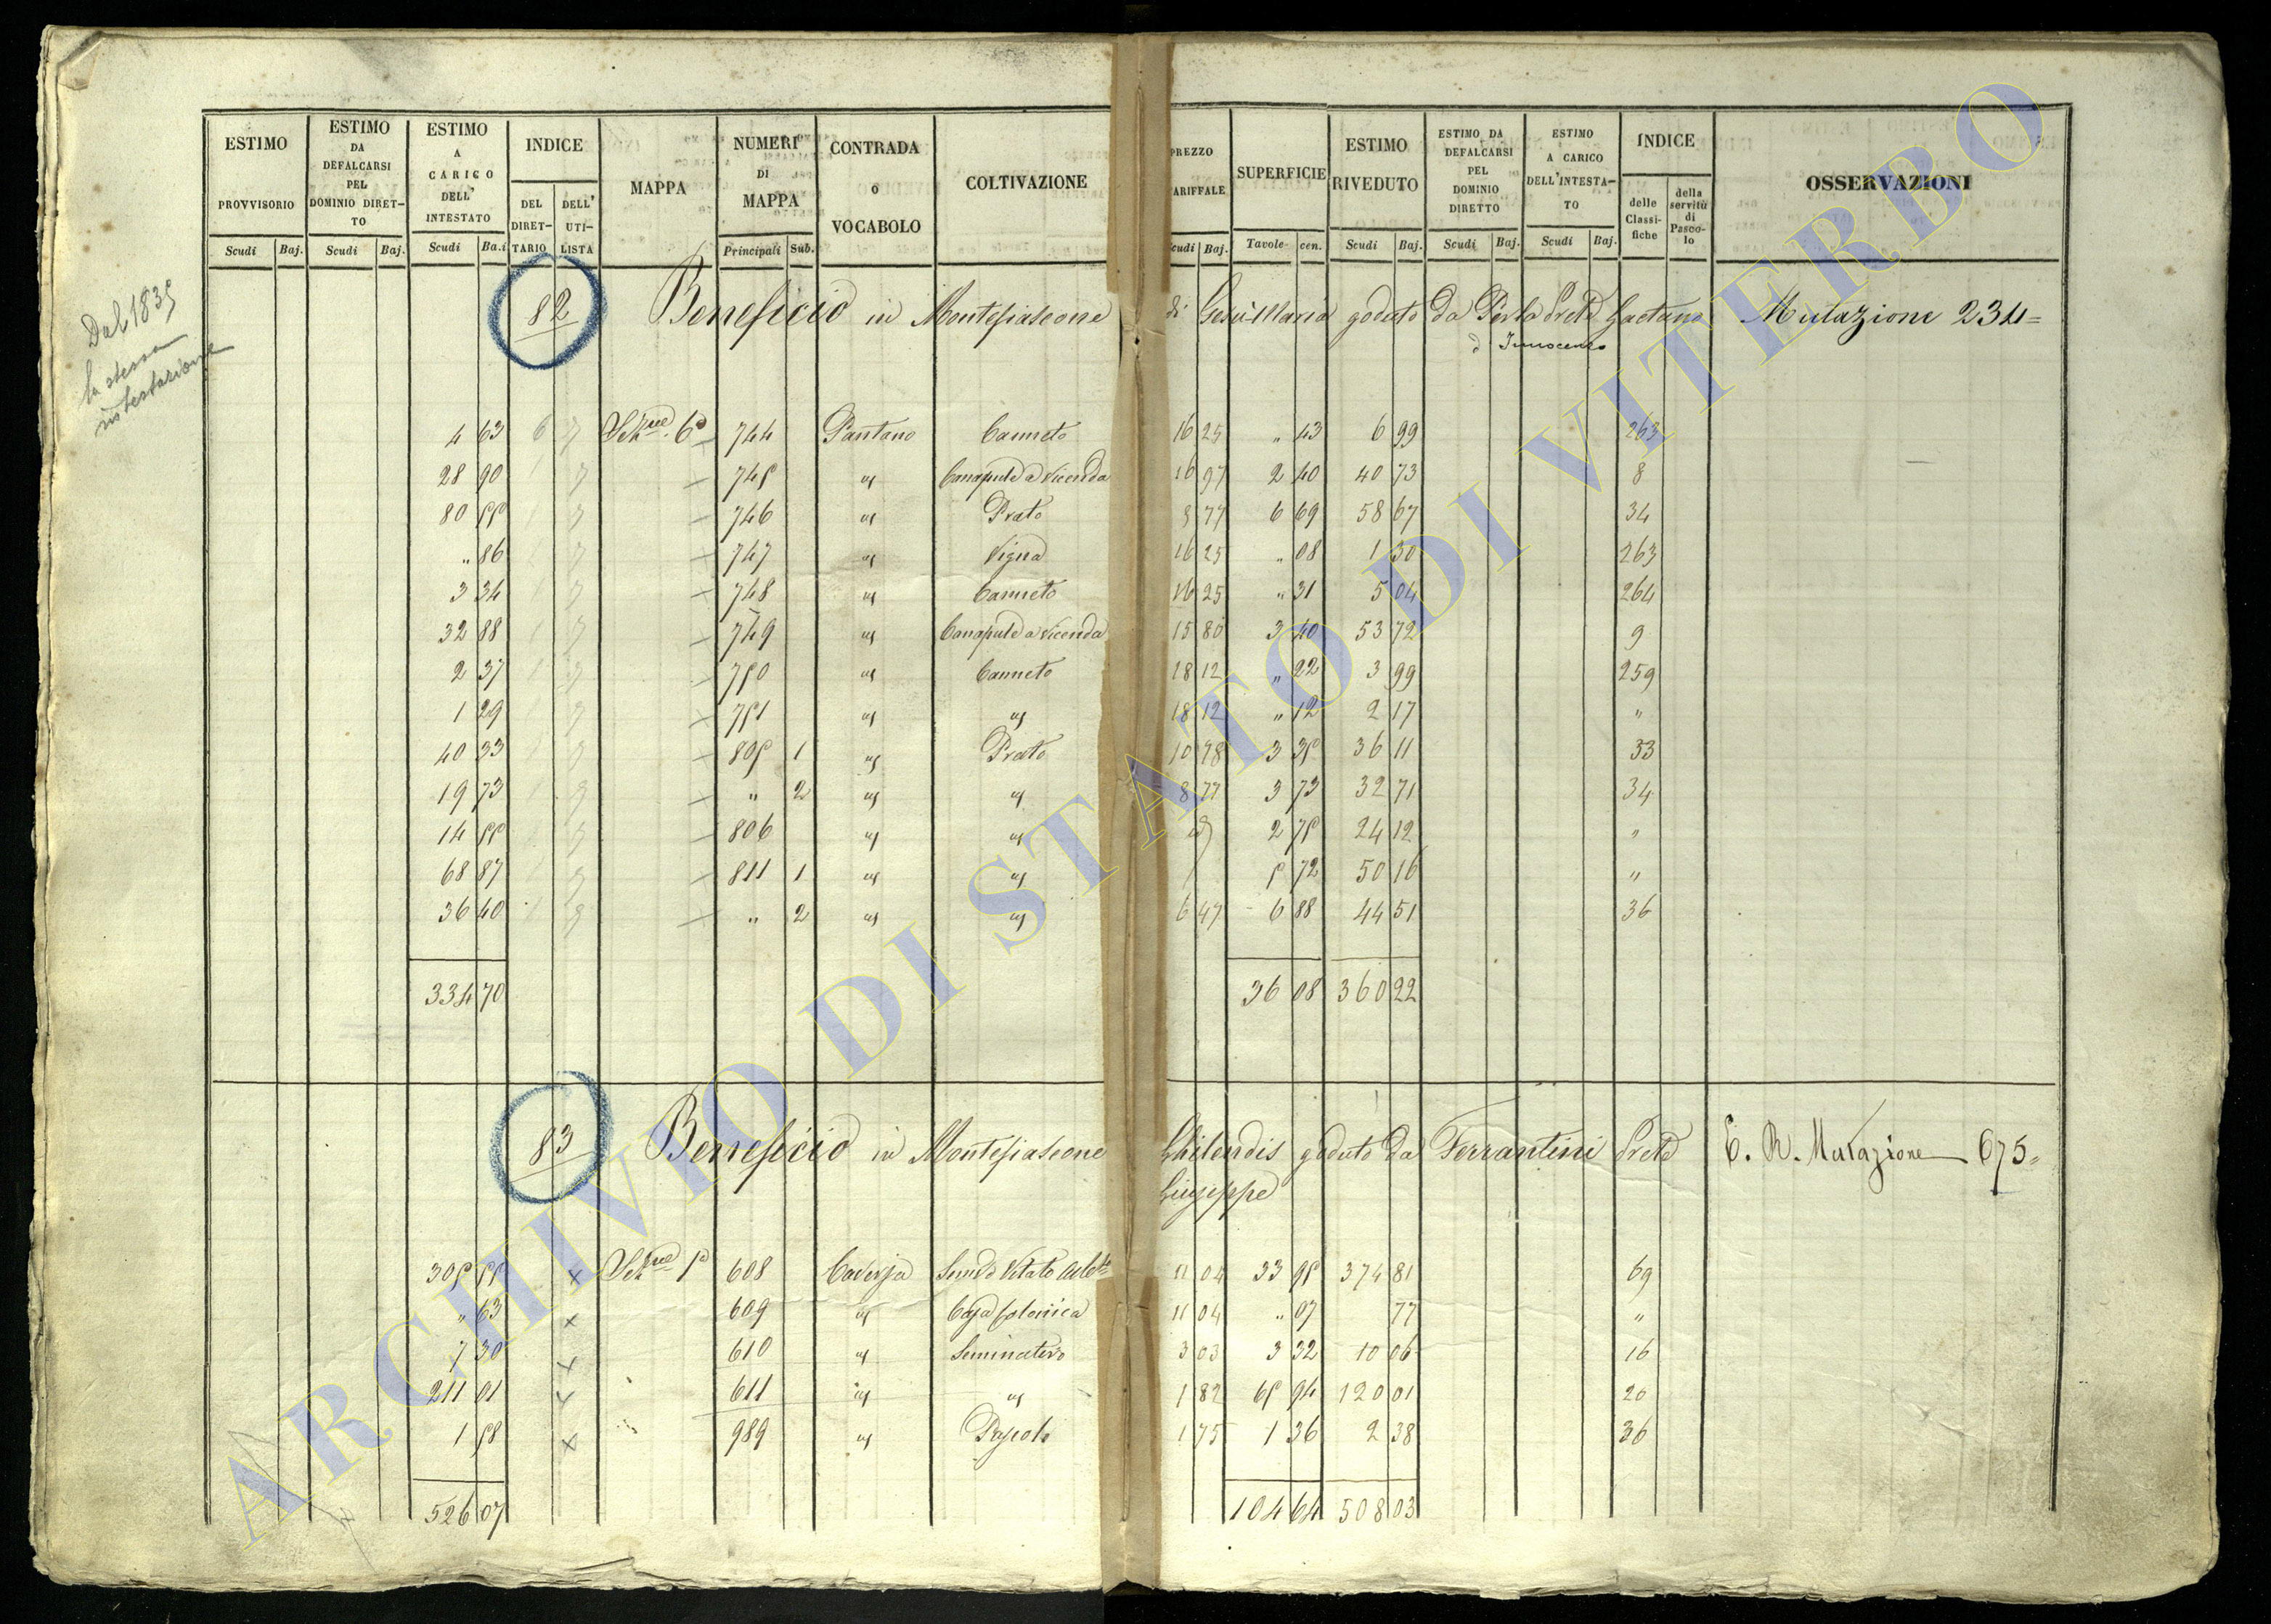 ESTIMO PROVVISORIO Scudi Baj.
ESTIMO DA DEFALCARSI PEL DOMINIO DIRET- TO Scudi Baj.
ESTIMO A CARICO DELL' INTESTATO Scudi Ba.i
INDICE DEL DIRET- TARIO DELL' UTI- LISTA
MAPPA
NUMERI DI MAPPA Principali Sub.
CONTRADA O VOCABOLO
COLTIVAZIONE
PREZZO TARIFFALE Scudi Baj.
SUPERFICIE Tavole cen.
ESTIMO RIVEDUTO Scudi Baj.
ESTIMO DA DEFALCARSI PEL DOMINIO DIRETTO Scudi Baj.
ESTIMO A CARICO DELL'INTESTA- TO Scudi Baj.
INDICE delle Classi- fiche della servitù di Pasco- lo
OSSERVAZIONI
Dal 1835
la stessa
intestazione
82 Beneficio in Montefiascone di Gesù Maria goduto da Perla Prete Gaetano Mutazione 234=
d Innocenzo
4 63 6 7 Sezne 6a 744 Pantano Canneto 16 25 " 43 6 99 263
28 90 745 " Canapule a Vicenda 16 97 2 40 40 73 8
80 55 746 " Prato 8 77 6 69 58 67 34
" 86 747 " Vigna 16 25 " 08 1 30 263
3 34 748 " Canneto 16 25 " 31 5 04 264
32 88 749 " Canapule a Vicenda 15 80 3 40 53 72 9
2 37 750 " Canneto 18 12 " 22 3 99 259
1 29 751 " " 18 12 " 12 2 17 "
40 33 805 1 " Prato 10 78 3 35 36 11 33
19 73 " 2 " " 8 77 3 73 32 71 34
14 55 806 " " 2 75 24 12 "
68 87 811 1 " " 5 72 50 16 "
36 40 " 2 " " 6 47 6 88 44 51 36
334 70 36 08 360 22
83 Beneficio in Montefiascone Ghilendis goduto da Ferrantini Prete E. R. Mutazione 675=
Giuseppe
305 55 x Sezne 5a 608 Caversa Semvo Vitato 11 04 33 95 374 81 69
" 63 x 609 " Casa Colonica 11 04 " 07 77 "
7 30 x 610 " Seminativo 3 03 3 32 10 06 16
211 01 x 611 " " 1 82 65 94 120 01 20
1 58 x 989 " Pascolo 1 75 1 36 2 38 36
526 07 104 64 508 03
ARCHIVIO DI STATO DI VITERBO